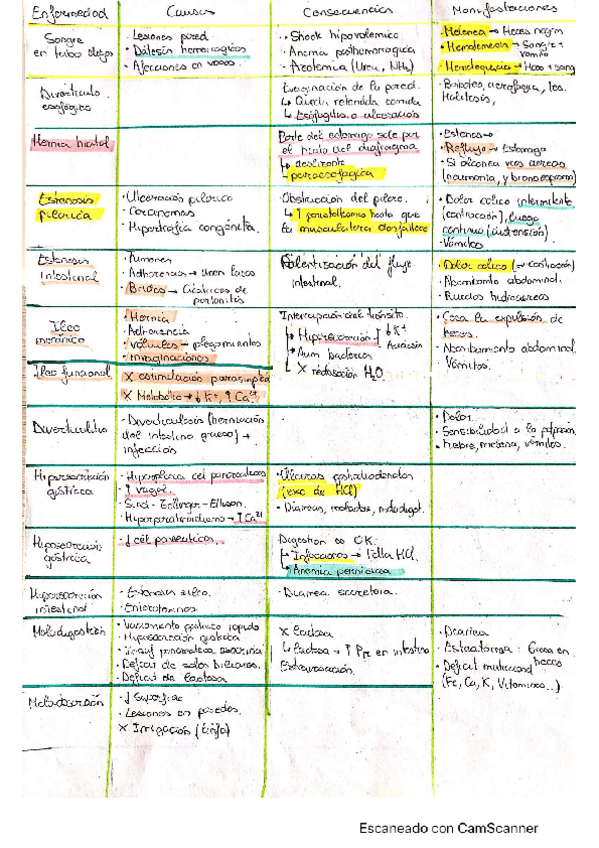 Enfermedad
Causas
Consecuencias
Manifestaciones
Sangre
en tubo digest
· Lesiones pared.
· Diátesis hemorrágica
· Afecciones en vasos.
· Shock hipovolémico
· Anemia posthemorragica
· Azotemia (Urea, NH4)
· Melenea → Heces negras
· Hematemesis → Sangre +
vómito
· Hematoquecia → Heces + sang
Divertículo
esofágico
Evaginación de la pared.
↳ Queda retenida comida
↳ Esofagitis o ulceración
Halitosis,
Hernia hiatal
Parte del estomago sale por
el hiato del diafragma
↳ deslizante
paraesofágica
· Reflujo → Estomago
· Si alcanza vías aéreas
(neumonía, y broncoespasmo)
Estenosis
pilórica
· Ulceración pilórica
· Carcinomas
· Hipertrofia congénita.
· Obstrucción del píloro.
↳ ↑ peristaltismo hasta que
la musculatura desfallece
· Dolor cólico intermitente
(contracción), luego
continuo (distensión).
· Vómitos
Estenosis
intestinal
· Tumores
· Adherencias → Unen lazos
· Bridas → Cicatrices de
peritonitis
Ralentización del flujo
intestinal.
· Dolor cólico (→ contracción)
· Abombamiento abdominal.
· Ruidos hidroaéreos
Ileo
mecánico
· Hernia
· Adherencia
· Vólvulos → plegamientos
· Invaginaciones
Interrupción del tránsito.
↳ Hipersecreción ↓ K+
↳ Aum bacterias
↳ X reabsorción H2O
· Cesa la expulsión de
heces.
· Abombamiento abdominal.
· Vómitos.
Ileo funcional
X estimulación parasimpá
X Metabólica → ↓ K+, ↑ Ca2+
Diverticulitis
· Diverticulosis (herniación
del intestino grueso) →
infección
· Dolor.
· Sensibilidad a la palpación.
· Fiebre, melena, vómitos.
Hipersecreción
gástrica
· Hiperplasia cel parietales
· ↑ vagal
· Sind. Zollinger-Ellison.
· Hiperparatiroidismo → ↑ Ca2+
· Úlceras gastroduodenales
(exc de HCl)
Hiposecreción
gástrica
· ↓ cél parietales.
Digestion es OK.
↳ Infecciones → Falta HCl.
↳ Anemia perniciosa
Hipersecreción
intestinal
· Enterotoxinas
· Diarrea secretora.
Maladigestión
· Vaciamiento gástrico rápido
· Hipersecreción gástrica
· Insuf pancreática exocrina
· Déficit de sales biliares.
· Déficit de lactasa
X lactasa
↳ lactosa → ↑ en intestino
· Diarrea
· Esteatorrea: Grasa en
heces
· Deficit nutricional
(Fe, Ca, K, Vitaminas..).
Malabsorción
· ↓ Superficie
· Lesiones en paredes.
X Irrigación (linfa)
Escaneado con CamScanner